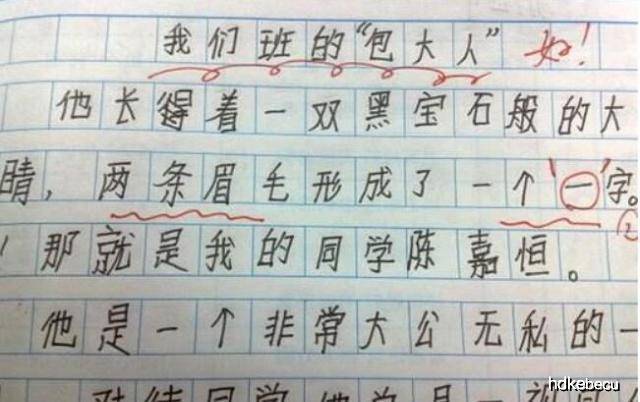 我们班的“包大人” 好！
他长得着一双黑宝石般的大
睛，两条眉毛形成了一个‘一’字。
②
那就是我的同学陈嘉恒。
他是一个非常大公无私的一
同学
hdkebecu